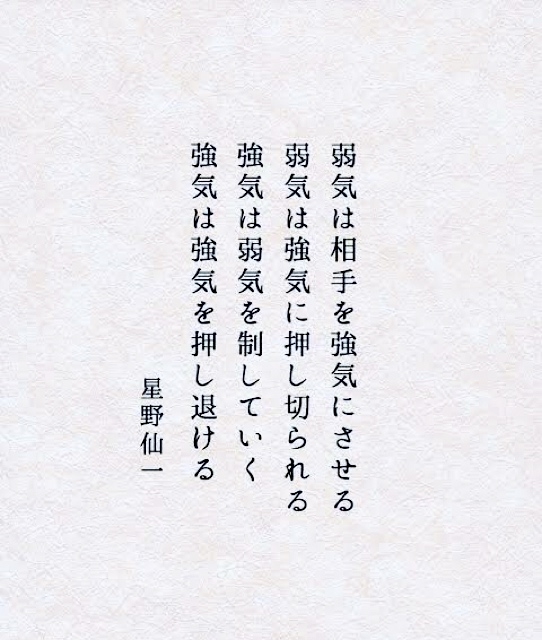 弱気は相手を強気にさせる
弱気は強気に押し切られる
強気は弱気を制していく
強気は強気を押し退ける
星野仙一